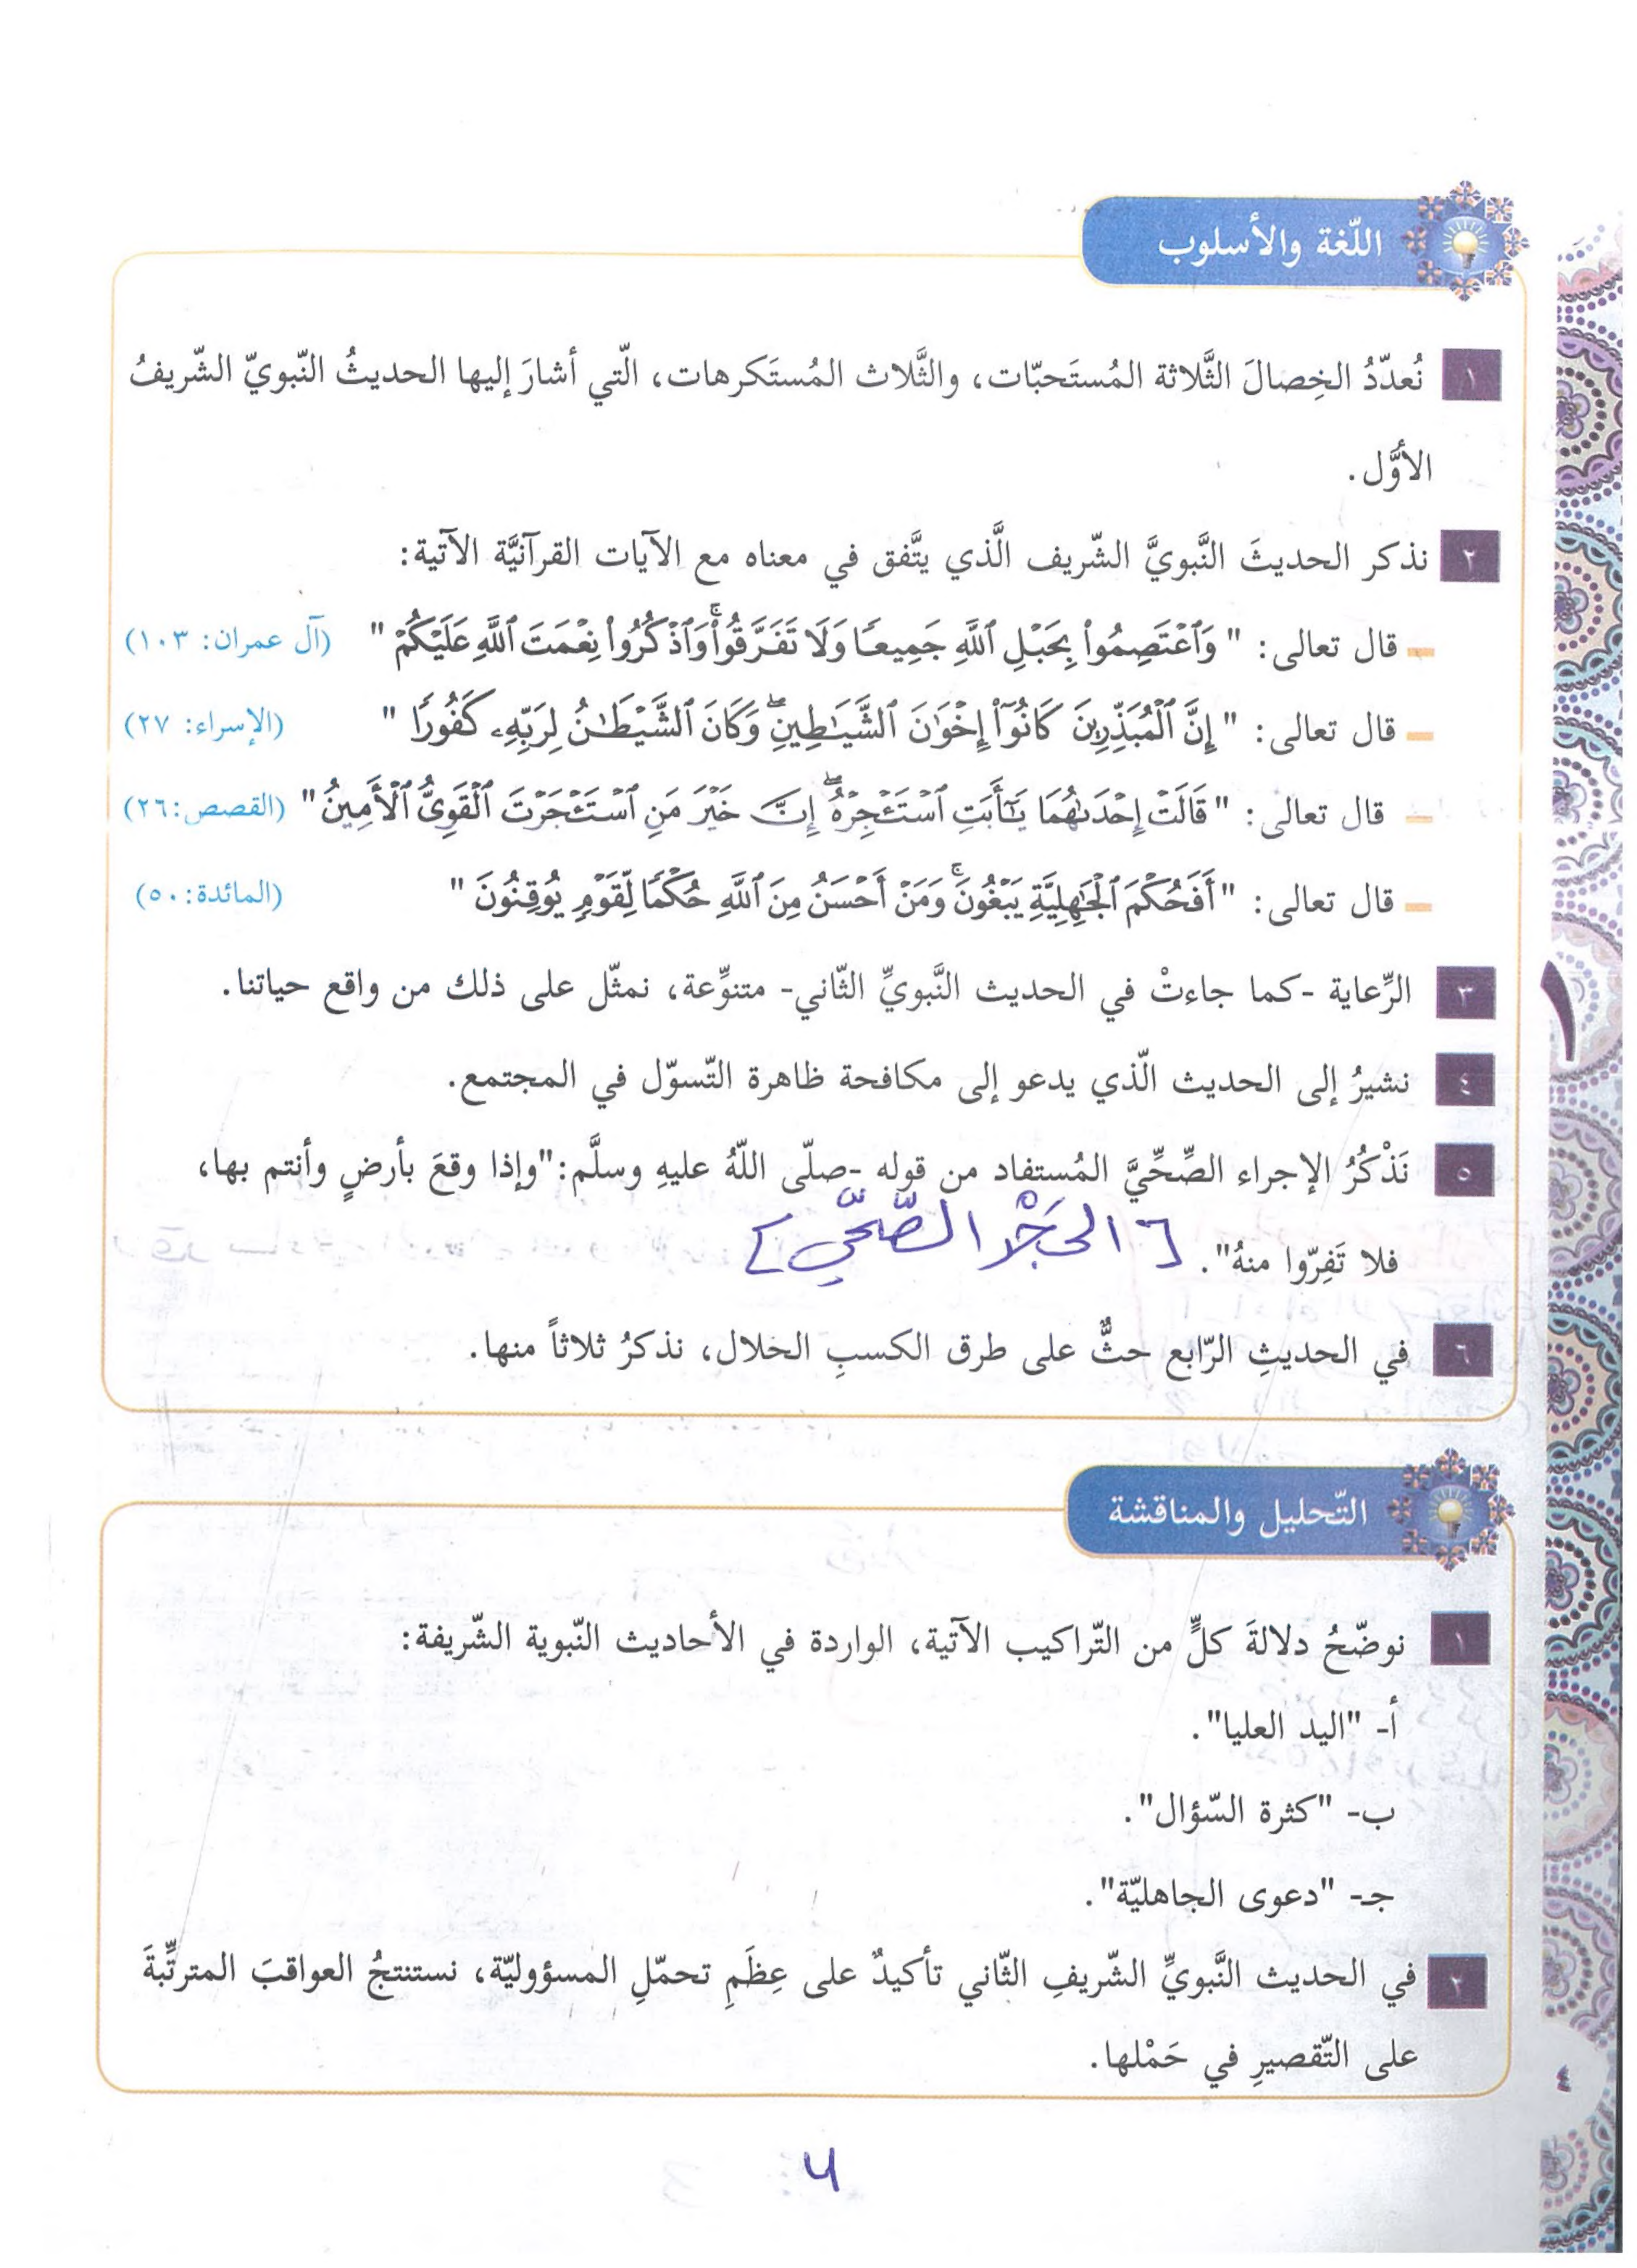 اللّغة والأسلوب
١ نُعدّدُ الخِصالَ الثَّلاثة المُستَحبّات، والثَّلاث المُستَكرهات، الّتي أشارَ إليها الحديثُ النّبويّ الشّريفُ
الأوَّل.
٢ نذكر الحديثَ النَّبويَّ الشّريف الَّذي يتَّفق في معناه مع الآيات القرآنيَّة الآتية:
– قال تعالى: " وَٱعۡتَصِمُواْ بِحَبۡلِ ٱللَّهِ جَمِيعٗا وَلَا تَفَرَّقُواْۚ وَٱذۡكُرُواْ نِعۡمَتَ ٱللَّهِ عَلَيۡكُمۡ " (آل عمران: ١٠٣)
– قال تعالى: " إِنَّ ٱلۡمُبَذِّرِينَ كَانُوٓاْ إِخۡوَٰنَ ٱلشَّيَٰطِينِۖ وَكَانَ ٱلشَّيۡطَٰنُ لِرَبِّهِۦ كَفُورٗا " (الإسراء: ٢٧)
– قال تعالى: " قَالَتۡ إِحۡدَىٰهُمَا يَٰٓأَبَتِ ٱسۡتَـٔۡجِرۡهُۖ إِنَّ خَيۡرَ مَنِ ٱسۡتَـٔۡجَرۡتَ ٱلۡقَوِيُّ ٱلۡأَمِينُ " (القصص:٢٦)
– قال تعالى: " أَفَحُكۡمَ ٱلۡجَٰهِلِيَّةِ يَبۡغُونَۚ وَمَنۡ أَحۡسَنُ مِنَ ٱللَّهِ حُكۡمٗا لِّقَوۡمٖ يُوقِنُونَ " (المائدة:٥٠)
٣ الرِّعاية -كما جاءتْ في الحديث النَّبويِّ الثّاني- متنوِّعة، نمثّل على ذلك من واقع حياتنا.
٤ نشيرُ إلى الحديث الّذي يدعو إلى مكافحة ظاهرة التّسوّل في المجتمع.
٥ نَذْكُرُ الإجراء الصِّحِّيَّ المُستفاد من قوله -صلّى اللّهُ عليهِ وسلَّم:"وإذا وقعَ بأرضٍ وأنتم بها،
فلا تَفِرّوا منهُ". [الحَجْر الصّحّي]
٦ في الحديثِ الرّابع حثٌّ على طرق الكسبِ الحلال، نذكرُ ثلاثاً منها.
١
التّحليل والمناقشة
١ نوضّحُ دلالةَ كلٍّ من التّراكيب الآتية، الواردة في الأحاديث النّبوية الشّريفة:
أ- "اليد العليا".
ب- "كثرة السّؤال".
جـ- "دعوى الجاهليّة".
٢ في الحديث النَّبويِّ الشّريفِ الثّاني تأكيدٌ على عِظَمِ تحمّلِ المسؤوليّة، نستنتجُ العواقبَ المترتِّبةَ
على التّقصيرِ في حَمْلها.
٤